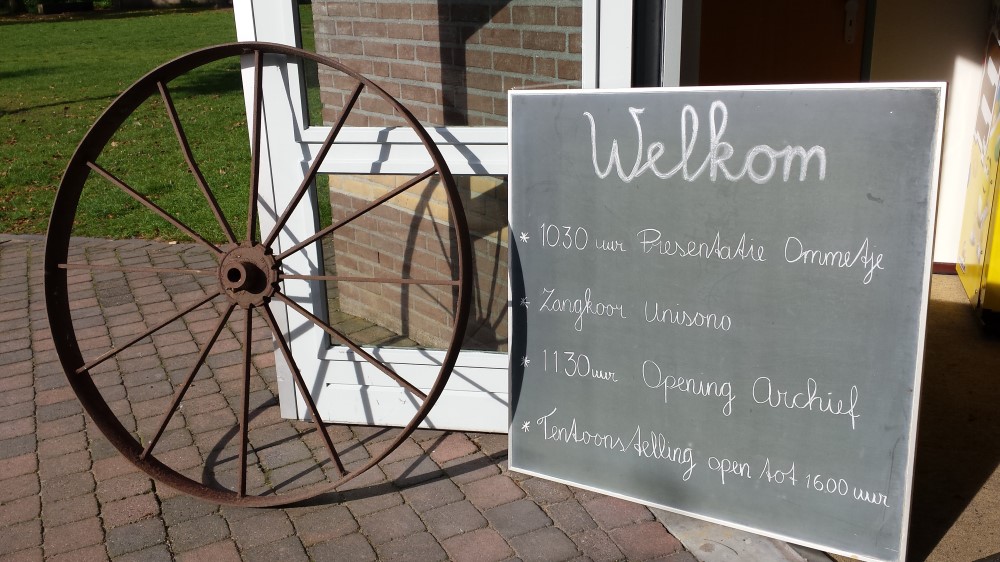 Welkom
* 1030 uur Presentatie Ommetje
* Zangkoor Unisono
* 1130 uur Opening Archief
* Tentoonstelling open tot 16.00 uur